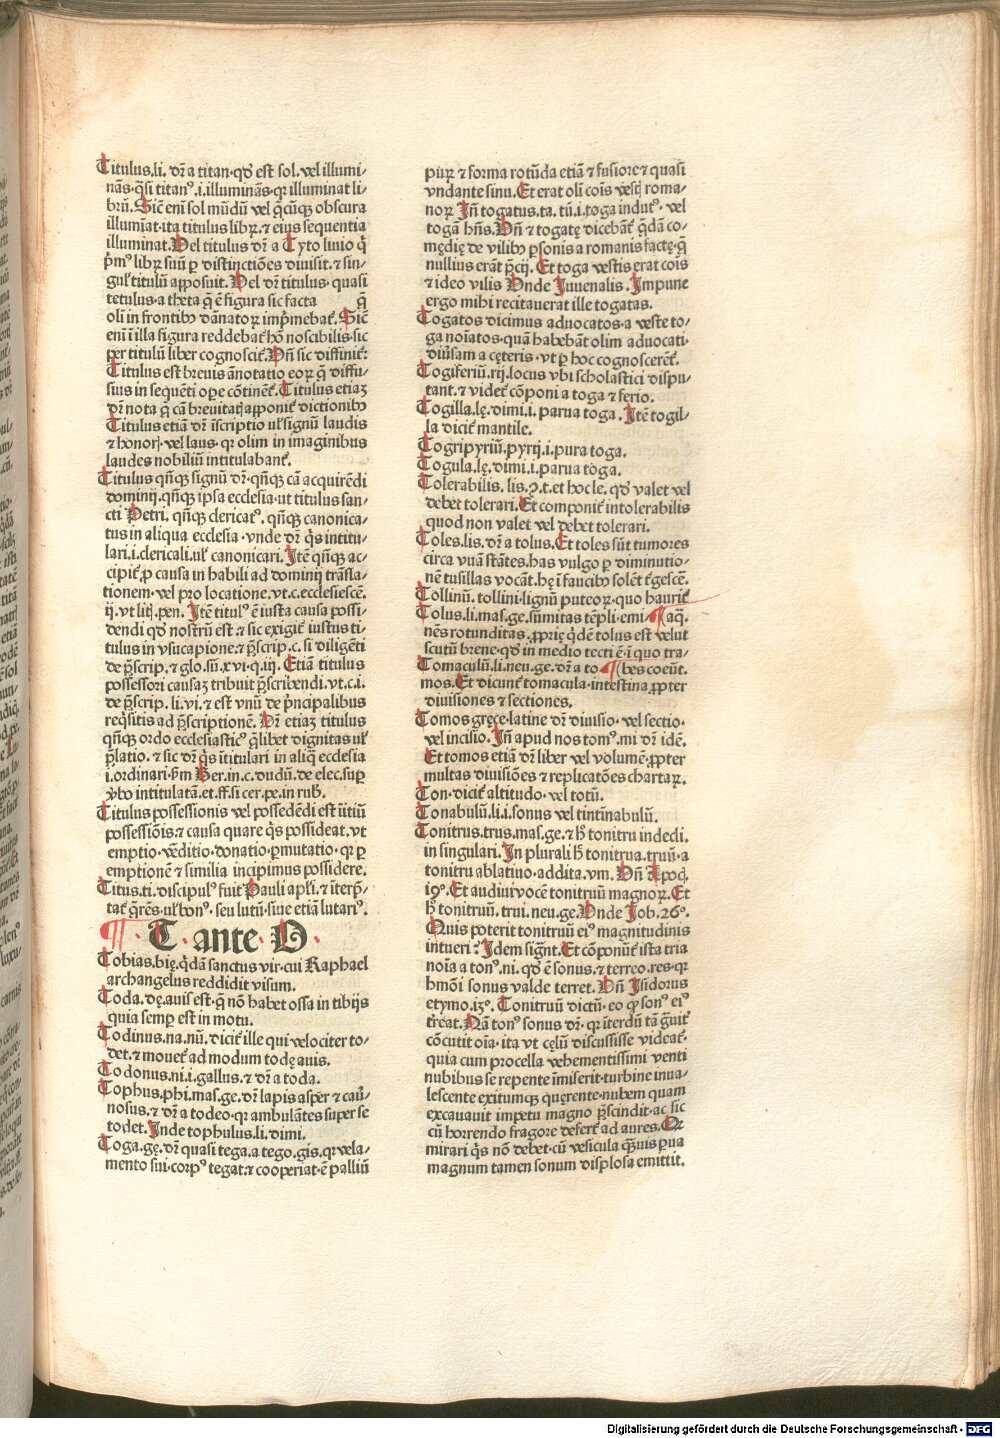 Titulus.li. dr̄ a titan·qd̛ est sol. vel illumi-
nās·q̄si titanꝰ.i.illuminās·qꝛ illuminat li-
brū. Sic̄ eni sol mūdū vel q̄cūqꝫ obscura
illumīat·ita titulus libꝝ.⁊ eius sequentia
illuminat. Vel titulus dr̄ a Tyto liuio q̄
p̄mꝰ libꝝ suū ꝑ distinctiōes diuisit.⁊ sin-
gul̛ titulū apposuit. Vel dr̄ titulus·quasi
tetulus·a theta q̄ ē figura sic facta q̄
olī in frontibꝰ dānatoꝝ imp̄mebat̛. Sic̄
eni illa figura reddebat̛ hō noscibilis·sic
per titulū liber cognoscit̛. Vn̄ sic diffinit̛:
Titulus est breuis ānotatio eoꝝ q̄ diffu-
sius in sequēti ope cōtinēt̛. Titulus etiaꝫ
dr̄ nota q̄ cā breuitatꝭ apponit̛ dictionibꝰ
Titulus etiā dr̄ īscriptio ul̛ signū laudis
⁊ honoꝝ·vel laus·qꝛ olim in imaginibus
laudes nobiliū intitulabant̛.
Titulus qn̄qꝫ signū dr̄·qn̄qꝫ cā acquirēdi
dominij·qn̄qꝫ ipsa ecclesia·ut titulus san-
cti Petri. qn̄qꝫ clericatꝰ. qn̄qꝫ canonica-
tus in aliqua ecclesia·vnde dr̄ q̄s intitu-
lari.i.clericali.ul̛ canonicari. Itē qn̄qꝫ ac-
cipit̛ ꝓ causa in habili ad dominij trāsla-
tionem·vel pro locatione.vt.c.ecclesiescē.
ij.vt liti.pen. Itē titulꝰ ē iusta causa possi-
dendi qd̛ nostrū est·⁊ sic exigit̛ iustus ti-
tulus in vsucapione·⁊ p̄scrip.c. si diligēti
de p̄scrip.⁊ glo.sū.xvi.q.iij. Etiā titulus
possessori causaꝫ tribuit p̄scribendi.vt.c.i.
de p̄scrip. li.vi.⁊ est vnū de p̄ncipalibus
req̄sitis ad p̄scriptionē. Dr̄ etiaꝫ titulus
qn̄qꝫ ordo ecclesiasticꝰ q̄libet dignitas ul̛
p̄latio.⁊ sic dr̄ q̄s ītitulari in aliq̄ ecclesia
i.ordinari·ꝑm Ber.in.c.dudū.de elec.suꝑ
ṽbo intitulatā.et.ff.si cer.pe.in rub̛.
Titulus possessionis vel possedēdi est iītiū
possessiōis.⁊ causa quare q̄s possideat.vt
emptio·vēditio·donatio·ꝑmutatio·qꝛ ꝑ
emptionē ⁊ similia incipimus possidere.
Titus.ti.discipulꝰ fuit Pauli apl̛i.⁊ īterp̄-
tat̛ q̄rēs·ul̛ bonꝰ. seu lutū·siue etiā lutariꝰ.
¶· T· ante· O·
Tobias.bię. q̄dā sanctus vir·cui Raphael
archangelus reddidit visum.
Toda.dę.auis est·q̄ nō habet ossa in tibijs
quia semꝑ est in motu.
Todinus.na.nū. dicit̛ ille qui velociter to-
det.⁊ mouet̛ ad modum todę auis.
Todonus.ni.i.gallus.⁊ dr̄ a toda.
Tophus.phi.mas.ge.dr̄ lapis asꝑ ⁊ caư-
nosus.⁊ dr̄ a todeo·qꝛ ambulātes super se
todet. Inde tophulus.li.dimi.
Toga.gę.dr̄ quasi tega.a tego.gis.qꝛ vela-
mento sui·corpꝰ tegat·⁊ cooperiat·ē palliū
puꝝ ⁊ forma rotūda etiā ⁊ fusiore ⁊ quasi
vndante sinu. Et erat oli cōis vesꝭ roma-
noꝝ Īn togatus.ta. tū.i.toga indutꝰ· vel
togā hn̄s. Vn̄ ⁊ togatę dicebāt̛ q̄dā co-
mędię de vilibꝰ ꝑsonis a romanis factę·q̄
nullius erāt p̄cij. Et toga vestis erat cōis
⁊ ideo vilis Vnde Iuuenalis. Impune
ergo mihi recitauerat ille togatas.
Togatos dicimus aduocatos·a veste to-
ga noīatos·quā habebāt olim aduocati·
diưsam a cęteris·vt ꝑ hoc cognoscerēt̛.
Togiferiū.rij.locus vbi scholastici dispu-
tant.⁊ videt̛ cōponi a toga ⁊ ferio.
Togilla.lę.dimi.i. parua toga. Itē togil-
la dicit̛ mantile.
Togripyriū.pyrij.i.pura toga.
Togula.lę.dimi.i.parua toga.
Tolerabilis. lis.ꝯ.t.et hoc le. qd̛ valet vel
debet tolerari. Et componit̛ intolerabilis
quod non valet vel debet tolerari.
Toles.lis.dr̄ a tolus. Et toles sūt tumores
circa vuā stātes.has vulgo ꝑ diminutio-
nē tusillas vocāt. hę i faucibꝰ solēt t̛gescē.
Tollinū. tollini·lignū puteoꝝ·quo haurit̛
Tolus.li.mas.ge.sūmitas tēpli.emi- ¶(aq̄.
nēs rotunditas. ꝓprię q̄dē tolus est velut
scutū breue·qd̛ in medio tecti ē·i quo tra-
Tomaculū.li.neu.ge.dr̄ a to ¶(bes coeūt.
mos. Et dicunt̛ tomacula·intestina ꝓpter
diuisiones ⁊ sectiones.
Tomos gręce·latine dr̄ diuisio·vel sectio·
vel incisio. Īn apud nos tomꝰ.mi dr̄ idē.
Et tomos etiā dr̄ liber vel volumē·ꝓpter
multas diuisiōes ⁊ replicatōes chartaꝝ.
Ton·dicit̛ altitudo·vel totū.
Tonabulū.li.i sonus vel tintīnabulū.
Tonitrus.trus.mas.ge.⁊ h̛ tonitru indecli.
in singulari. In plurali h̛ tonitrua.truū·a
tonitru ablatiuo·addita.vm. Vn̄ Apoc̛.
19°. Et audiui vocē tonitruū magnoꝝ. Et
h̛ tonitruū. trui.neu.ge. Vnde Job.26°.
Quis poterit tonitruū eiꝰ magnitudinis
intueri? Idem sign̄t. Et cōponūt̛ ista tria
noīa a tonꝰ.ni.qd̛ ē sonus.⁊ terreo.res·qꝛ
hmōi sonus valde terret. Vn̄ Isidorus
etymo.13°. Tonitruū dictū·eo ꝙ sonꝰ eiꝰ
t̛reat. Nā tonꝰ sonus dr̄·qꝛ īterdū tā g̛uit̛
cōcutit oīa·ita vt cęlū discussisse videat̛·
quia cum procella vehementissimi venti
nubibus se repente īmiserit·turbine inua-
lescente exitumqꝫ querente·nubem quam
excauauit impetu magno p̄scindit·ac sic
cū horrendo fragore defert̛ ad aures. Qꝛ
mirari q̄s nō debet·cū vesicula q̄uis ꝑua
magnum tamen sonum displosa emittit.
Digitalisierung gefördert durch die Deutsche Forschungsgemeinschaft - DFG